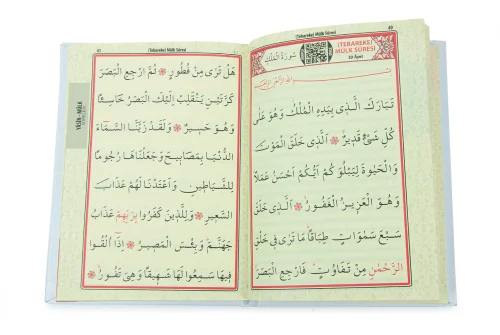 40
(Tebareke) Mülk Sûresi
(TEBAREKE)
MÜLK SURESİ
30 Ayet
سُورَةُ الْمُلْكِ
تَبَارَكَ الَّذٖى بِيَدِهِ الْمُلْكُ وَهُوَ عَلٰى
كُلِّ شَىْءٍ قَدٖيرٌ ❀ اَلَّذٖى خَلَقَ الْمَوْتَ
وَالْحَيٰوةَ لِيَبْلُوَكُمْ اَيُّكُمْ اَحْسَنُ عَمَلًا
وَهُوَ الْعَزٖيزُ الْغَفُورُ ❀ اَلَّذٖى خَلَقَ
سَبْعَ سَمٰوَاتٍ طِبَاقًا مَا تَرٰى فٖى خَلْقِ
الرَّحْمٰنِ مِنْ تَفَاوُتٍ فَارْجِعِ الْبَصَرَ
41
(Tebareke) Mülk Sûresi
YÂSİN - MÜLK
هَلْ تَرٰى مِنْ فُطُورٍ ❀ ثُمَّ ارْجِعِ الْبَصَرَ
كَرَّتَيْنِ يَنْقَلِبْ اِلَيْكَ الْبَصَرُ خَاسِئًا
وَهُوَ حَسٖيرٌ ❀ وَلَقَدْ زَيَّنَّا السَّمَاءَ
الدُّنْيَا بِمَصَابٖيحَ وَجَعَلْنَاهَا رُجُومًا
لِلشَّيَاطٖينِ وَاَعْتَدْنَا لَهُمْ عَذَابَ
السَّعٖيرِ ❀ وَلِلَّذٖينَ كَفَرُوا بِرَبِّهِمْ عَذَابُ
جَهَنَّمَ وَبِئْسَ الْمَصٖيرُ ❀ اِذَا اُلْقُوا
فٖيهَا سَمِعُوا لَهَا شَهٖيقًا وَهِىَ تَفُورُ ❀